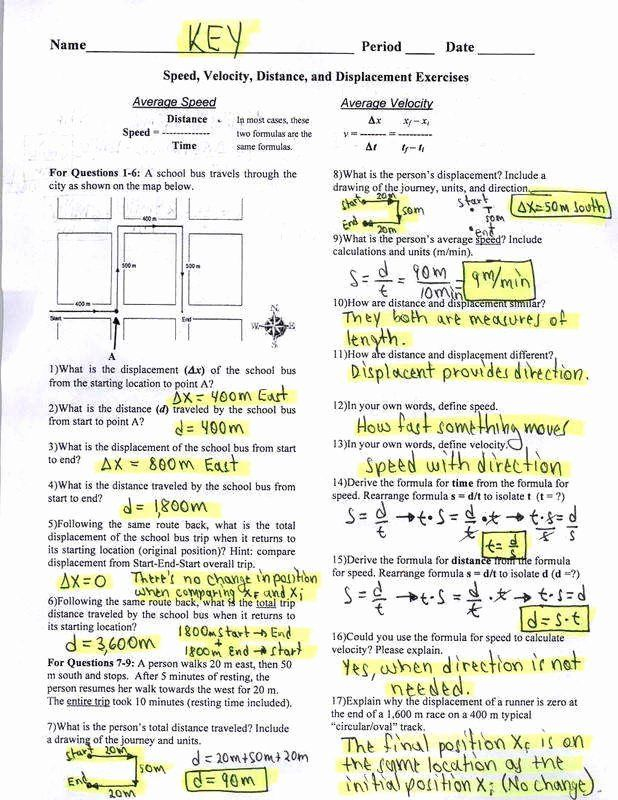 Name KEY Period ____ Date ____
Speed, Velocity, Distance, and Displacement Exercises
Average Speed
Distance
Speed = -------------
Time
In most cases, these
two formulas are the
same formulas.
Average Velocity
Δx xf – xi
v = ------- = ---------
Δt tf – ti
For Questions 1-6: A school bus travels through the
city as shown on the map below.
400 m
500 m
500 m
400 m
Start
End
N
W
E
S
A
1)What is the displacement (Δx) of the school bus
from the starting location to point A?
Δx = 400m East
2)What is the distance (d) traveled by the school bus
from start to point A?
d = 400m
3)What is the displacement of the school bus from start
to end? Δx = 800m East
4)What is the distance traveled by the school bus from
start to end?
d = 1,800m
5)Following the same route back, what is the total
displacement of the school bus trip when it returns to
its starting location (original position)? Hint: compare
displacement from Start-End-Start overall trip.
Δx = 0 There's no change in position
when comparing XF and Xi
6)Following the same route back, what is the total trip
distance traveled by the school bus when it returns to
its starting location?
d = 3,600m
1800m Start → End
+
1800m End → Start
For Questions 7-9: A person walks 20 m east, then 50
m south and stops. After 5 minutes of resting, the
person resumes her walk towards the west for 20 m.
The entire trip took 10 minutes (resting time included).
7)What is the person's total distance traveled? Include
a drawing of the journey and units.
Start 20m
50m
End
20m
d = 20m+50m+20m
d = 90m
8)What is the person's displacement? Include a
drawing of the journey, units, and direction.
Start 20m
50m
End
20m
start
50m
end
Δx = 50m south
9)What is the person's average speed? Include
calculations and units (m/min).
S = d/t = 90m/10min = 9m/min
10)How are distance and displacement similar?
They both are measures of
length.
11)How are distance and displacement different?
Displacent provides direction.
12)In your own words, define speed.
How fast something moves
13)In your own words, define velocity.
Speed with direction
14)Derive the formula for time from the formula for
speed. Rearrange formula s = d/t to isolate t (t = ?)
S = d/t → t·S = d/t · t → t·s/s = d/s
t = d/s
15)Derive the formula for distance from the formula
for speed. Rearrange formula s = d/t to isolate d (d =?)
S = d/t → t·S = d/t · t → t·S = d
d = s·t
16)Could you use the formula for speed to calculate
velocity? Please explain.
Yes, when direction is not
needed.
17)Explain why the displacement of a runner is zero at
the end of a 1,600 m race on a 400 m typical
"circular/oval" track.
The final position XF is on
the same location as the
initial position Xi (No change).